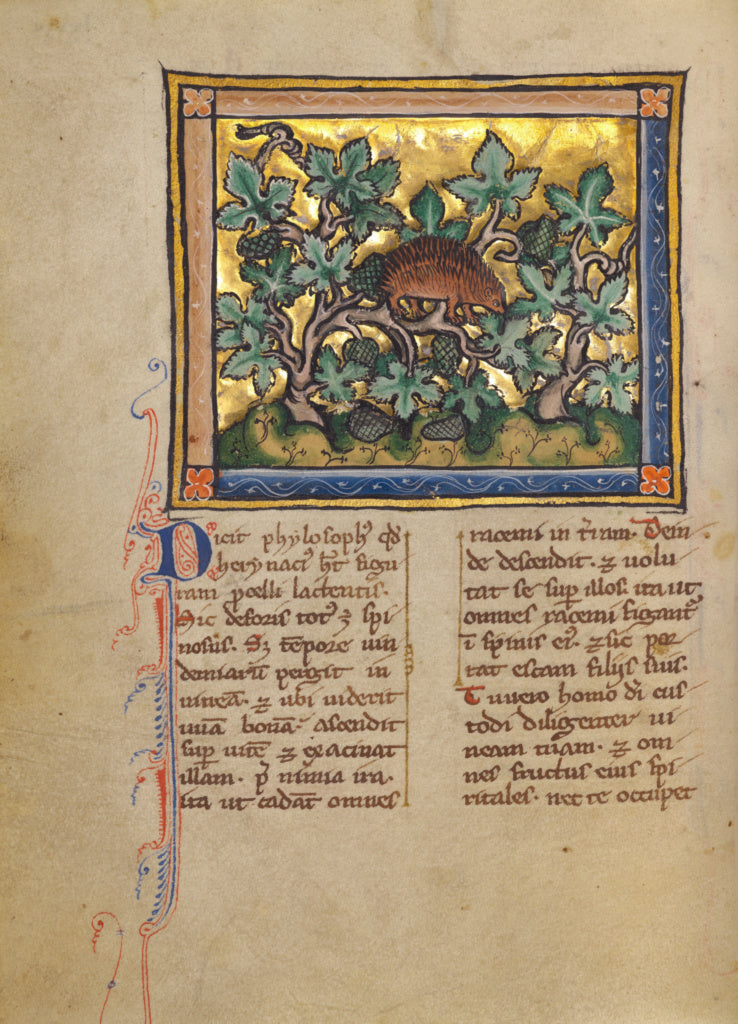 Dicit phylosophꝰ qđ
herynaciꝰ hꝫ figu
ram porcelli lactentis.
Sic deforis totꝰ ē spi
nosus. Sꝫ tēpore uin
demiarū pergit in
uineā. ⁊ ubi uiderit
uuā bonā. ascendit
suꝑ uitē ⁊ exacinat
illam.
ita ut cadāt omnes
racemi in t̄ram. Dein
de descendit. ⁊ uolu
tat se suꝑ illos. ita ut
omnes racemi figantᷣ
ī spinis eiꝰ. ⁊ sic por
tat escam filijs suis.
Tu uero homo dī cus
todi diligenter ui
neam tuam. ⁊ om
nes fructus eius spi
ritales. nec te occupet